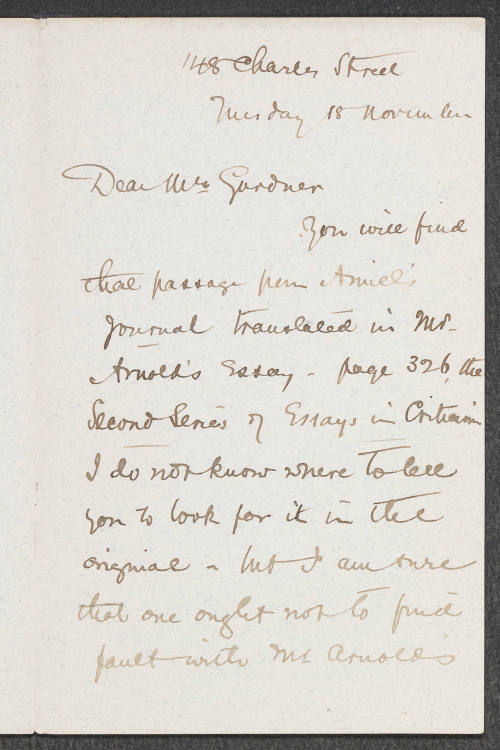 148 Charles Street
Tuesday 18 November
Dear Mrs Gardner
You will find
that passage from Amiel's
Journal translated in Mr.
Arnold's Essay - page 326, the
Second Series of Essays in Criticism
I do not know where to tell
you to look for it in the
original - but I am sure
that one ought not to find
fault with Mr Arnold's